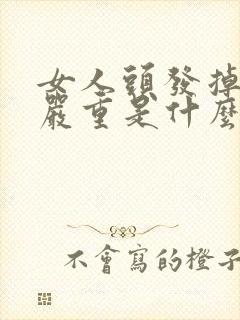 女人頭發掉
嚴重是什麼
不會寫的橙子